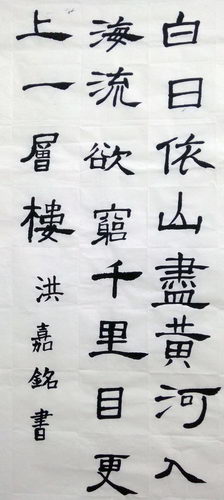 白日依山盡黃河入
海流欲窮千里目更
上一層樓
洪嘉銘書